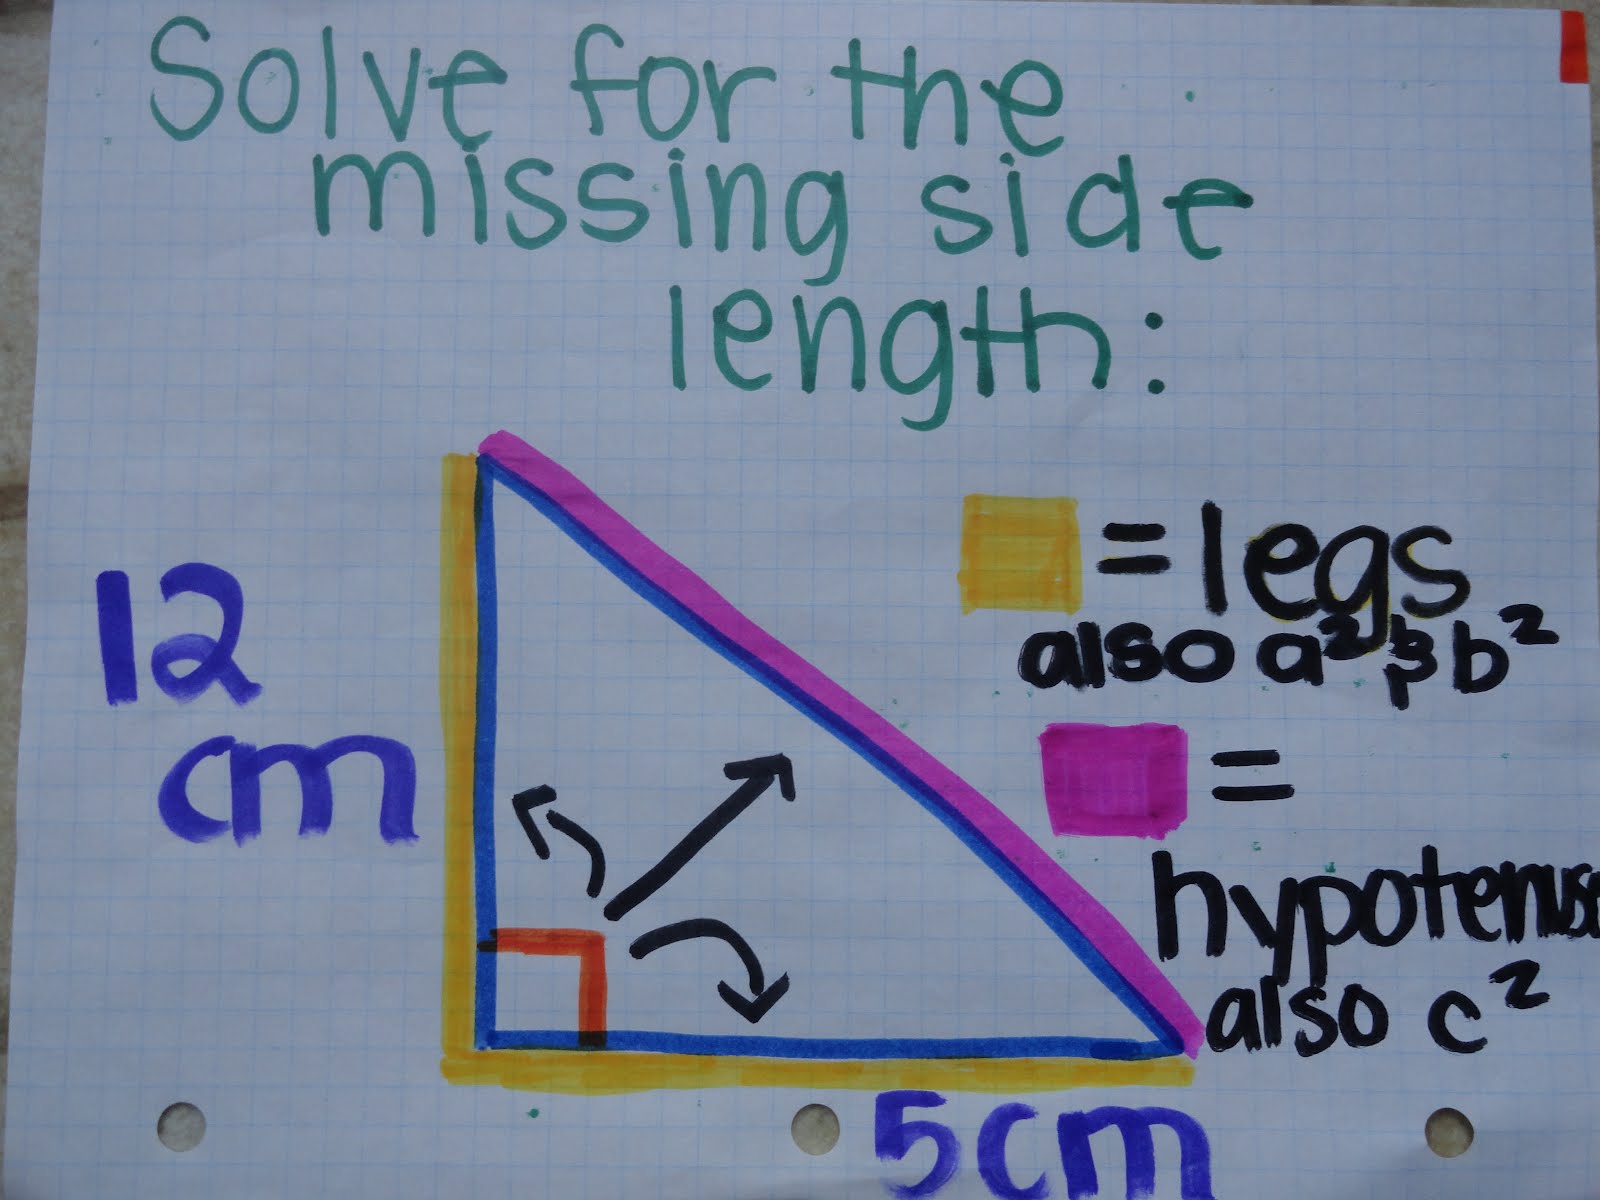 Solve for the
missing side
length:
12
cm
= legs
also a² & b²
=
hypotenuse
also c²
5cm